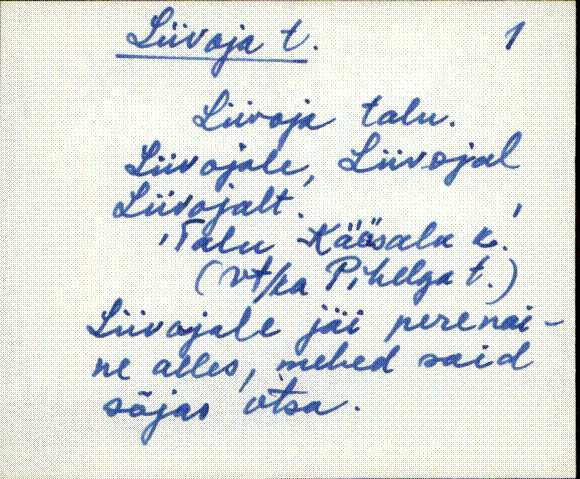 Liivoja t. 1
Liivoja talu.
Liivojale, Liivojal,
Liivojalt.
'Talu Kääsala k.'
(vt/ka Pihelga t.)
Liivojale jäi perenai-
ne alles, mehed said
sõjas otsa.